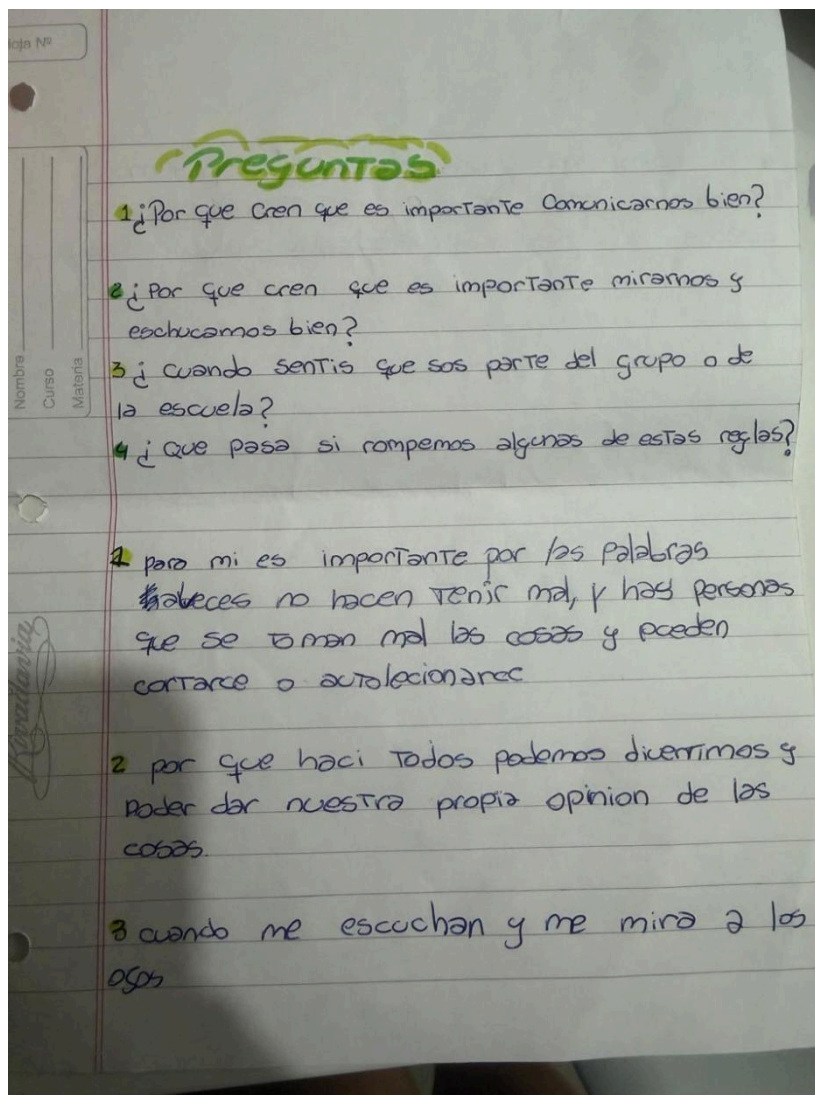 Hoja Nº
Nombre
Curso
Materia
Rivadavia
Preguntas
1 ¿Por que cren que es importante Comunicarnos bien?
2 ¿Por que cren que es importante mirarnos y
eschucarnos bien?
3 ¿ cuando sentis que sos parte del grupo o de
la escuela?
4 ¿ Que pasa si rompemos algunas de estas reglas?
1 para mi es importante por las palabras
haveces no hacen venir mal, y hay personas
que se toman mal las cosas y pueden
cortarce o autolecionarec
2 por que haci todos podemos diverrirnos y
poder dar nuestra propia opinion de las
cosas.
3 cuando me escuchan y me mira a los